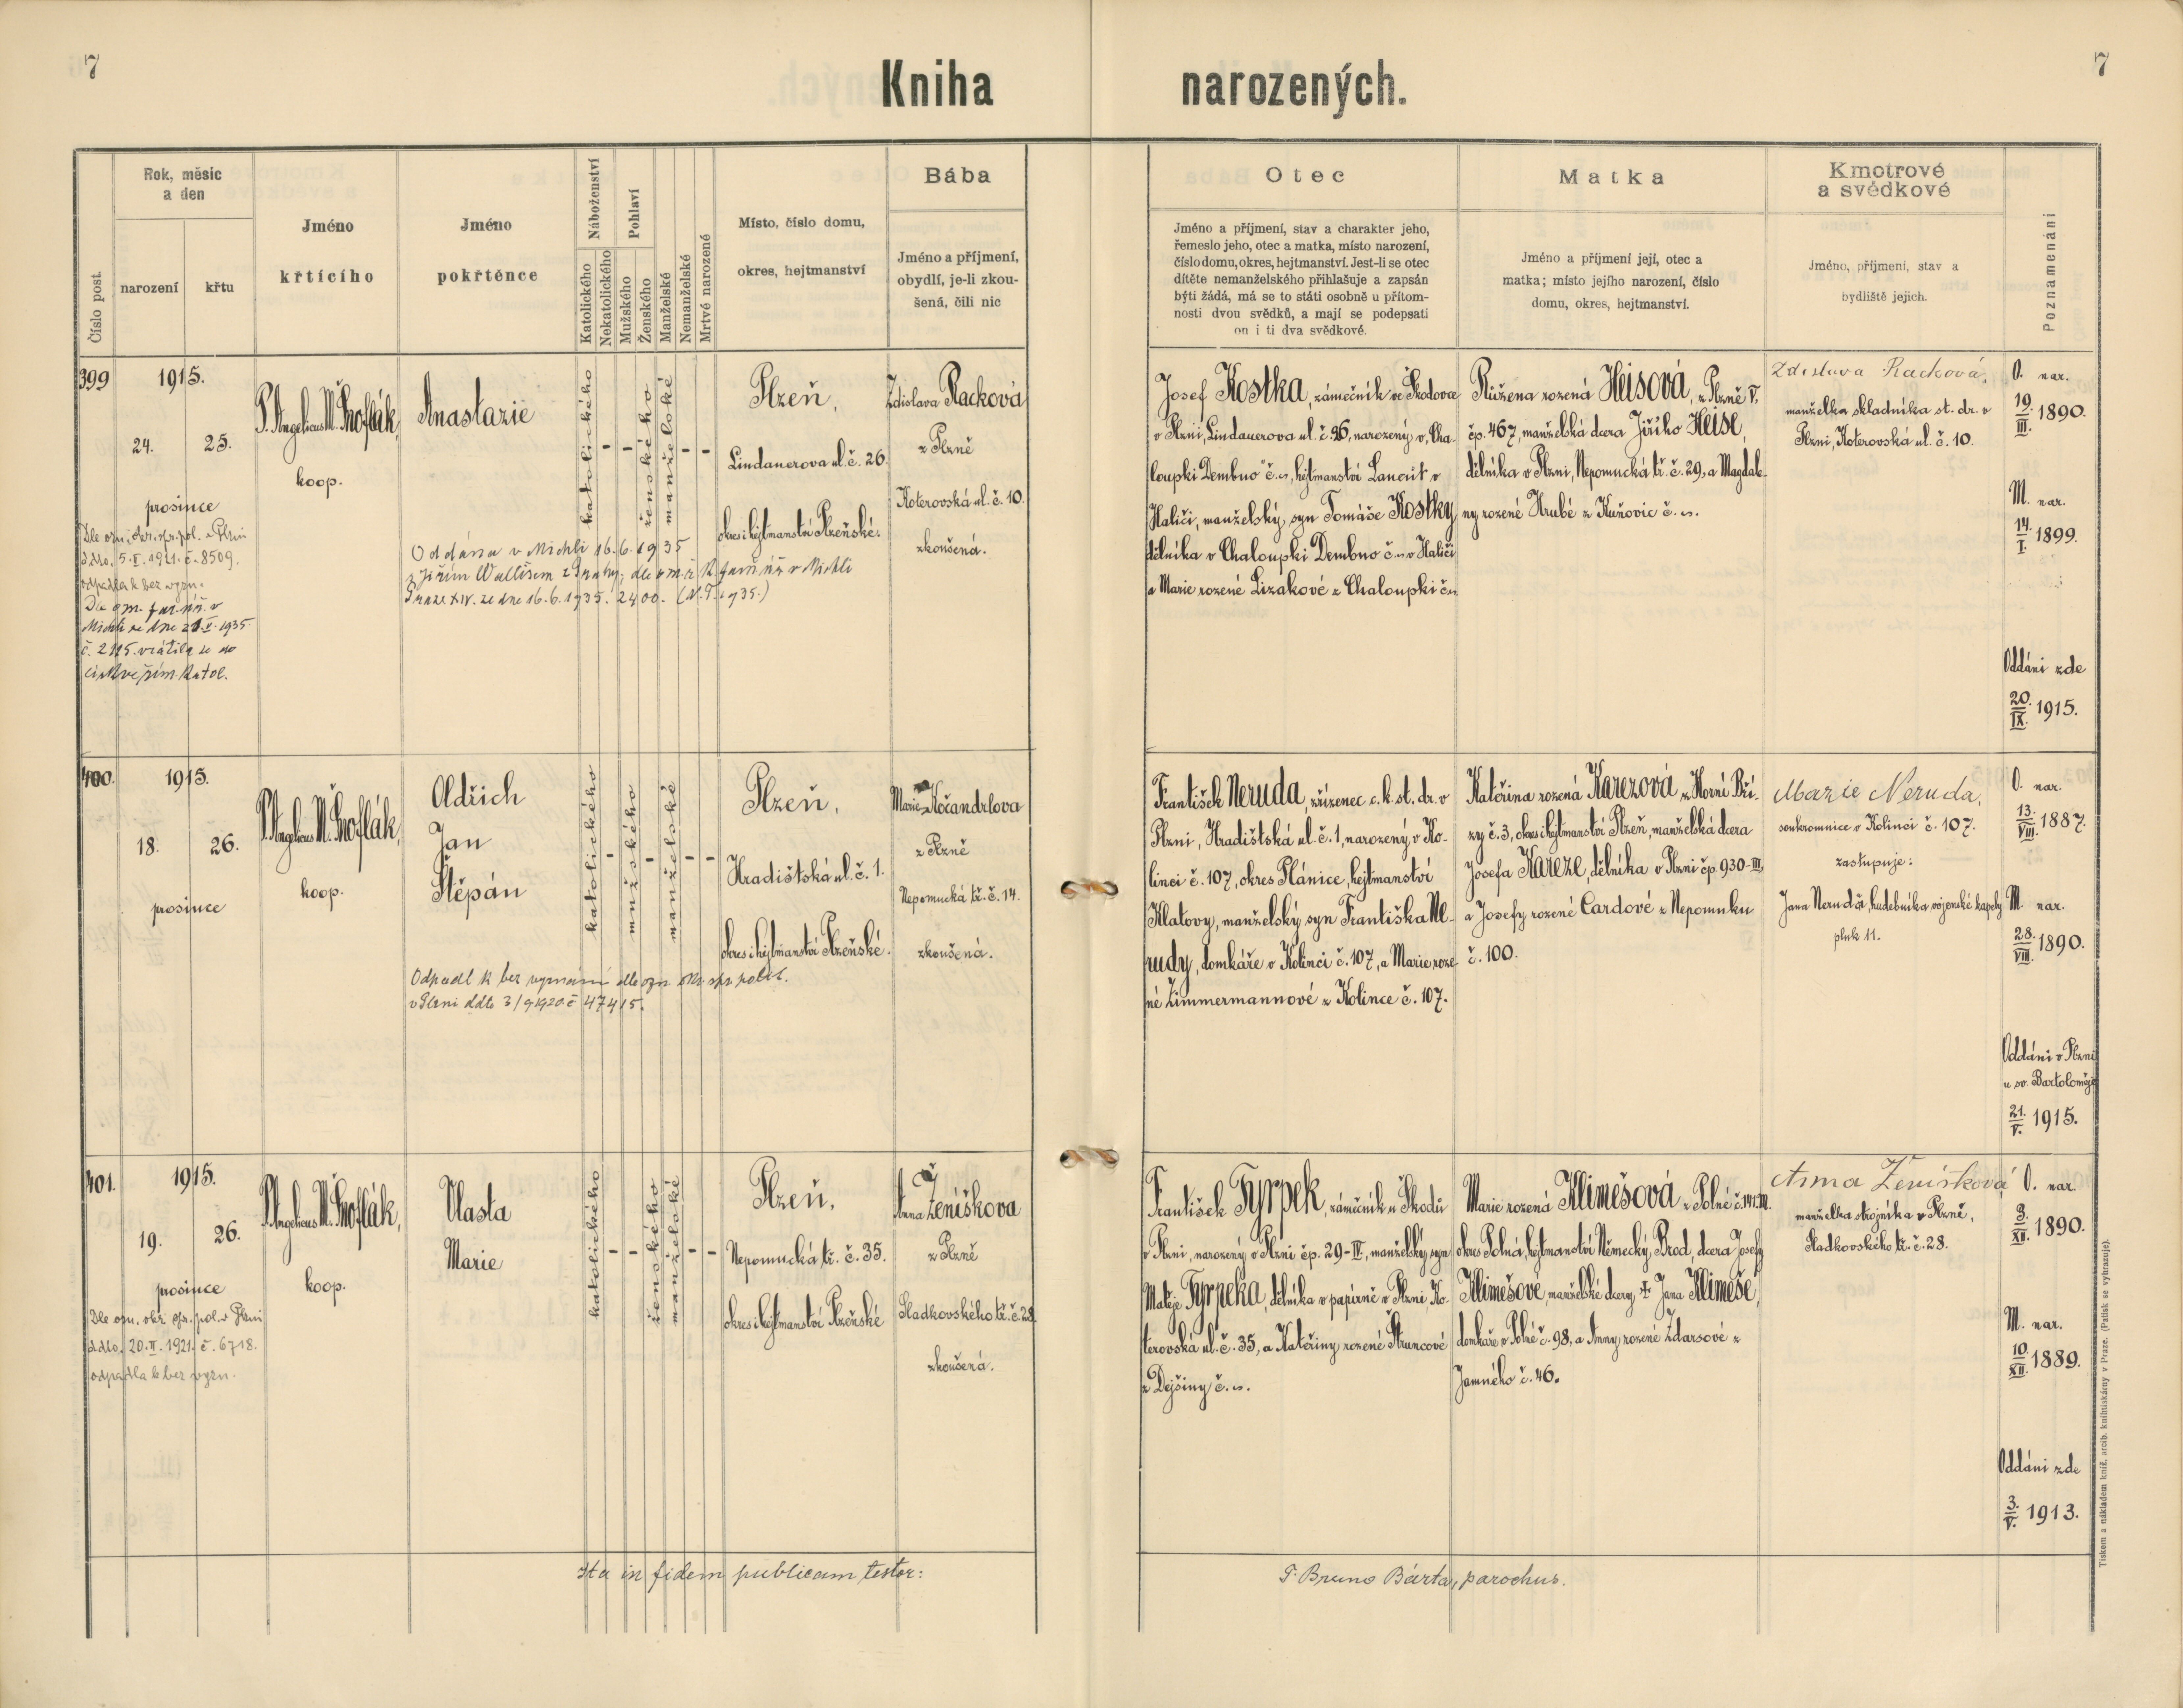 7
Kniha narozených.
7
Číslo post.
Rok, měsíc
a den
narození
křtu
Jméno
křtícího
Jméno
pokřtěnce
Náboženství
Katolického
Nekatolického
Pohlaví
Mužského
Ženského
Manželské
Nemanželské
Mrtvé narozené
Místo, číslo domu,
okres, hejtmanství
Bába
Jméno a příjmení,
obydlí, je-li zkou-
šená, čili nic
Otec
Jméno a příjmení, stav a charakter jeho,
řemeslo jeho, otec a matka, místo narození,
číslo domu, okres, hejtmanství. Jest-li se otec
dítěte nemanželského přihlašuje a zapsán
býti žádá, má se to státi osobně u přítom-
nosti dvou svědků, a mají se podepsati
on i ti dva svědkové.
Matka
Jméno a příjmení její, otec a
matka; místo jejího narození, číslo
domu, okres, hejtmanství.
Kmotrové
a svědkové
Jméno, příjmení, stav a
bydliště jejich.
Poznamenání
399
1915.
24. 25.
prosince
Dle ozn. okr. spr. pol. v Plzni
ddto. 5.I.1921. č. 8509.
odpadla k bez vyzn.
Dle ozn. far. úř. v
Michli ze dne 21.V.1935
č. 2115. vrátila se do
církve řím. katol.
P. Angelicus M.
koop.
Anastazie
katolického
-
-
ženského
manželské
-
-
Oddána v Michli 16.6.1935
z Prahy, dle far. úř. v Michli
Praze XIV. ze dne 16.6.1935. 2400.
Plzeň,
Lindauerova ul. č. 26.
okres i hejtmanství Plzeňské.
Zdislava Racková
z Plzně
Koterovská ul. č. 10.
zkoušená.
Josef Kostka, zámečník ve Škodovce
v Plzni, Lindauerova ul. č. 26, narozený v „Cha-
loupki Dembno" č. n., hejtmanství Lancut v
Haliči, manželský syn Tomáše Kostky
dělníka v Chaloupki Dembno č. n. v Haliči
a Marie rozené Lizákové z Chaloupki č. n.
Růžena rozená Heisová, z Plzně V.
čp. 467, manželská dcera Jiřího Heise,
dělníka v Plzni, Nepomucká tř. č. 29, a Magdale-
ny rozené Hrubé z Kuňovic č. n.
Zdislava Racková,
manželka skladníka st. dr. v
Plzni, Koterovská ul. č. 10.
O. nar.
19. III. 1890.
M. nar.
14. I. 1899.
Oddáni zde
20. IX. 1915.
400.
1915.
18. 26.
prosince
P. Angelicus M.
koop.
Oldřich
Jan
Štěpán
katolického
-
mužského
-
manželské
-
-
Odpadl k bez vyznání dle ozn. okr. spr. polit.
v Plzni ddto 3/9 1920 č 47415.
Plzeň,
Hradištská ul. č. 1.
okres i hejtmanství Plzeňské.
Marie Kočandrlova
z Plzně
Nepomucká tř. č. 14.
zkoušená.
František Neruda, zřízenec c. k. st. dr. v
Plzni, Hradištská ul. č. 1, narozený v Ko-
linci č. 107, okres Plánice, hejtmanství
Klatovy, manželský syn Františka Ne-
rudy, domkáře v Kolinci č. 107, a Marie roze-
né Zimmermannové z Kolince č. 107.
Kateřina rozená Karezová z Horní Bří-
zy č. 3, okres i hejtmanství Plzeň, manželská dcera
Josefa Kareze, dělníka v Plzni čp. 930-III,
a Josefy rozené Cardové z Nepomuku
č. 100.
Marie Neruda,
soukromnice v Kolinci č. 107.
zastupuje:
Jana Nerudu, hudebníka vojenské kapely
pluk 11.
O. nar.
13. VIII. 1887.
M. nar.
28. VIII. 1890.
Oddáni v Plzni
u sv. Bartoloměje
21. V. 1915.
401.
1915.
19. 26.
prosince
Dle ozn. okr. spr. pol. v Plzni
ddto. 20.II.1921. č. 6718.
odpadla k bez vyzn.
P. Angelicus M.
koop.
Vlasta
Marie
katolického
-
-
ženského
manželské
-
-
Plzeň,
Nepomucká tř. č. 35.
okres i hejtmanství Plzeňské
Anna Ženíškova
z Plzně
Sladkovského tř. č. 28
zkoušená.
František Fyrpek, zámečník u Škodů
v Plzni, narozený v Plzni čp. 29-IV, manželský syn
Matěje Fyrpeka, dělníka v papírně v Plzni, Ko-
terovská ul. č. 35, a Kateřiny rozené Štruncové
z Dejšiny č. n.
Marie rozená Klimešová z Polné
okres Polná, hejtmanství Německý Brod, dcera Josefy
Klimešové, manželské dcery † Jana Klimeše,
domkáře v Polné č. 98, a Anny rozené Zdarsové z
Jamného č. 46.
Anna Ženíšková
manželka strojníka v Plzně,
Sladkovského tř. č. 28.
O. nar.
3. XII. 1890.
M. nar.
10. XII. 1889.
Oddáni zde
3. V. 1913.
Ita in fidem publicam testor:
P. Bruno Bárta, parochus.
Tiskem a nákladem kníž. arcib. knihtiskárny v Praze. (Patisk se vyhrazuje).